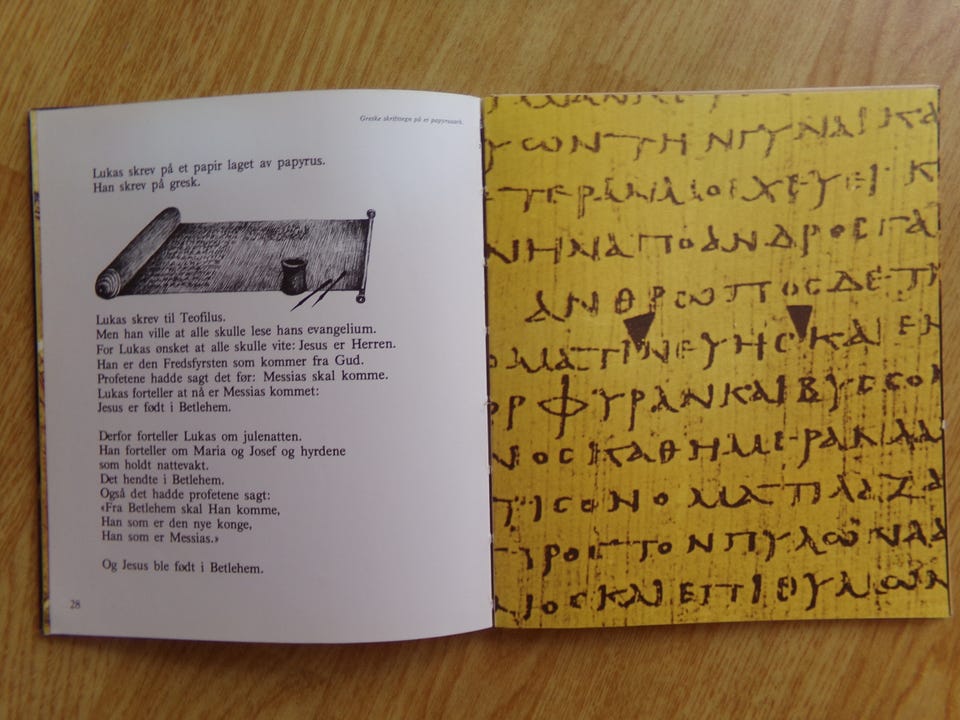 Greske skrifttegn på et papyrusark.
Lukas skrev på et papir laget av papyrus.
Han skrev på gresk.
Lukas skrev til Teofilus.
Men han ville at alle skulle lese hans evangelium.
For Lukas ønsket at alle skulle vite: Jesus er Herren.
Han er den Fredsfyrsten som kommer fra Gud.
Profetene hadde sagt det før: Messias skal komme.
Lukas forteller at nå er Messias kommet:
Jesus er født i Betlehem.
Derfor forteller Lukas om julenatten.
Han forteller om Maria og Josef og hyrdene
som holdt nattevakt.
Det hendte i Betlehem.
Også det hadde profetene sagt:
«Fra Betlehem skal Han komme,
Han som er den nye konge,
Han som er Messias.»
Og Jesus ble født i Betlehem.
28
ΥωΝΤΗΝΓΥΝΑΙΚΑ
ΤΕΡΑΝΜΟΙΧΕΥΕΙ Κ
ΝΗΝΑΠΟΑΝΔΡΟϹΓΑ
ΑΝΘΡωΠΟϹΔΕΤΙ
ΟΜΑΤΙΝΕΥΗϹΚΑΙΕΝ
ΟΡΦΥΡΑΝΚΑΙΒΥϹϹΟΝ
ΝΟϹΚΑΘΗΜΕΡΑΝΛΑ
ΤΙϹΟΝΟΜΑΤΙΛΑΖΑ
ΡΟϹΤΟΝΠΥΛωΝΑΑ
ΝΟϹΚΑΙΕΠΙΘΥΜωΝ